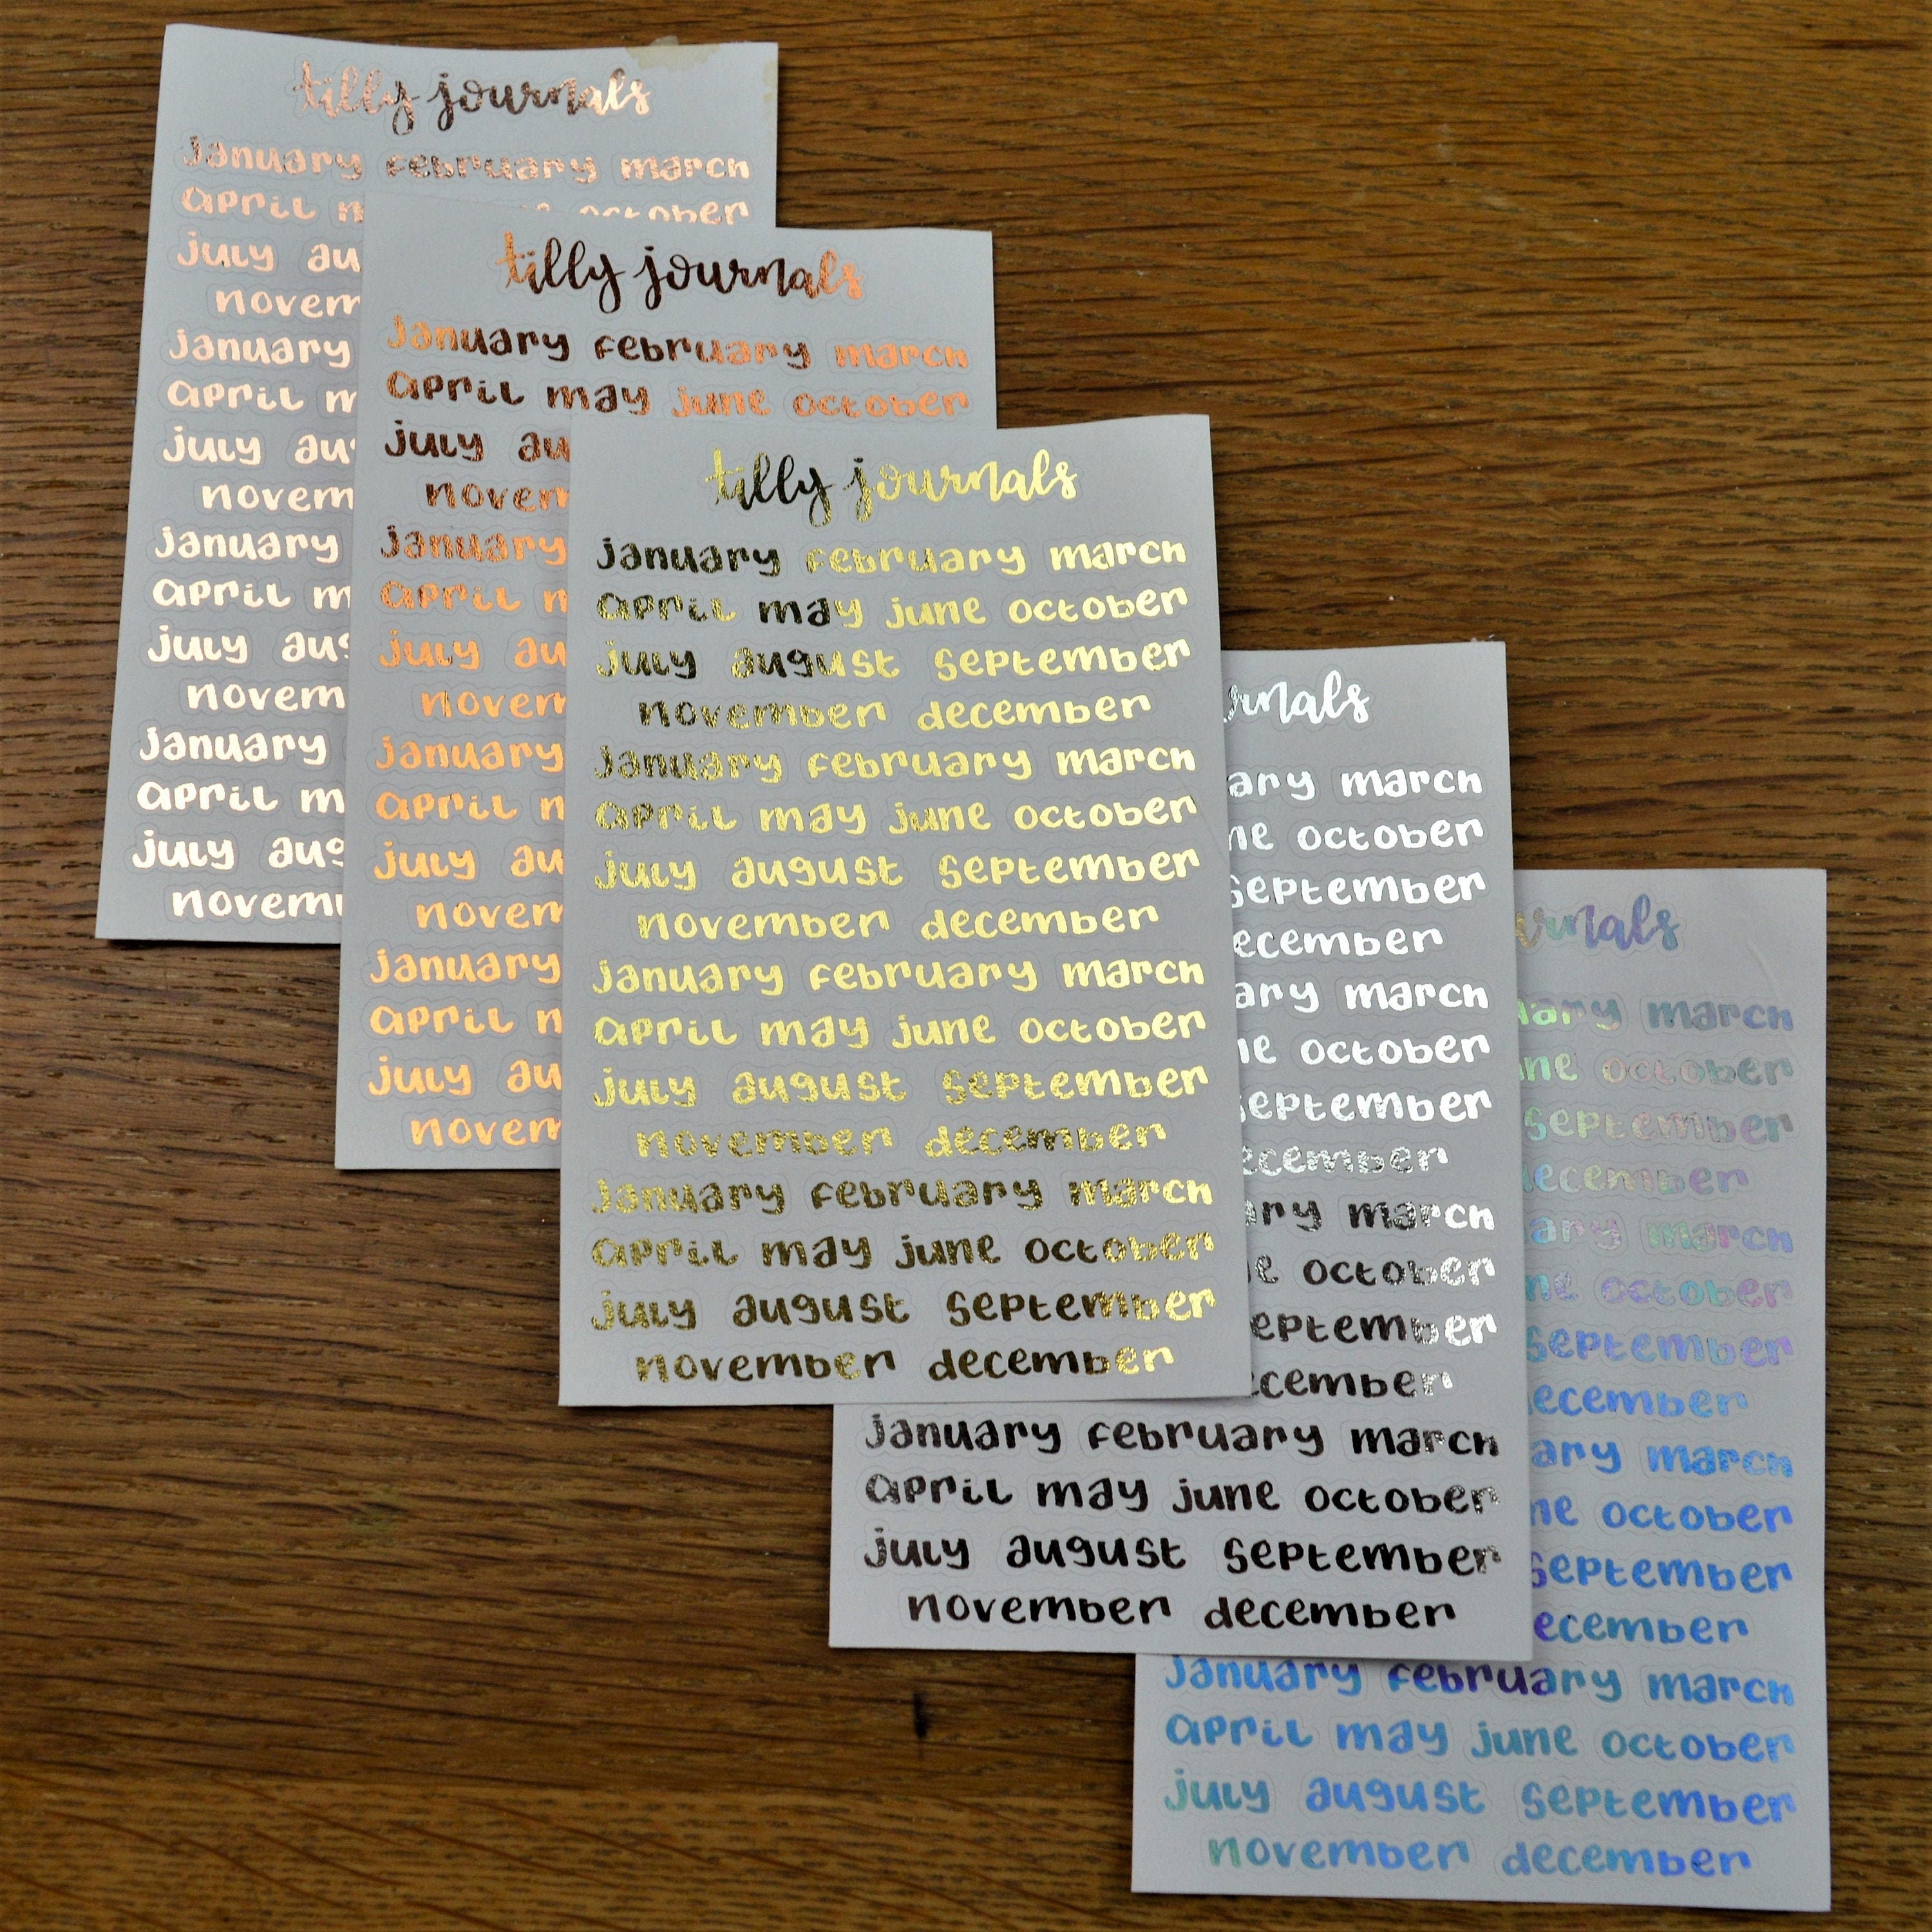 tilly journals
january february march
april m october
july au
novem
january
april m
july au
novem
january
april m
july aug
novem
january
april m
july aug
novem
tilly journals
january february march
april may june october
july au
novem
january
april m
july au
novem
january
april m
july au
novem
january
april m
july au
novem
tilly journals
january february march
april may june october
july august september
november december
january february march
april may june october
july august september
november december
january february march
april may june october
july august september
november december
january february march
april may june october
july august september
november december
urnals
ary march
ne october
september
ecember
ary march
ne october
september
ecember
ary march
e october
eptember
cember
january february march
april may june october
july august september
november december
urnals
uary march
une october
september
december
ary march
ne october
september
ecember
ary march
ne october
september
ecember
january february march
april may june october
july august september
november december